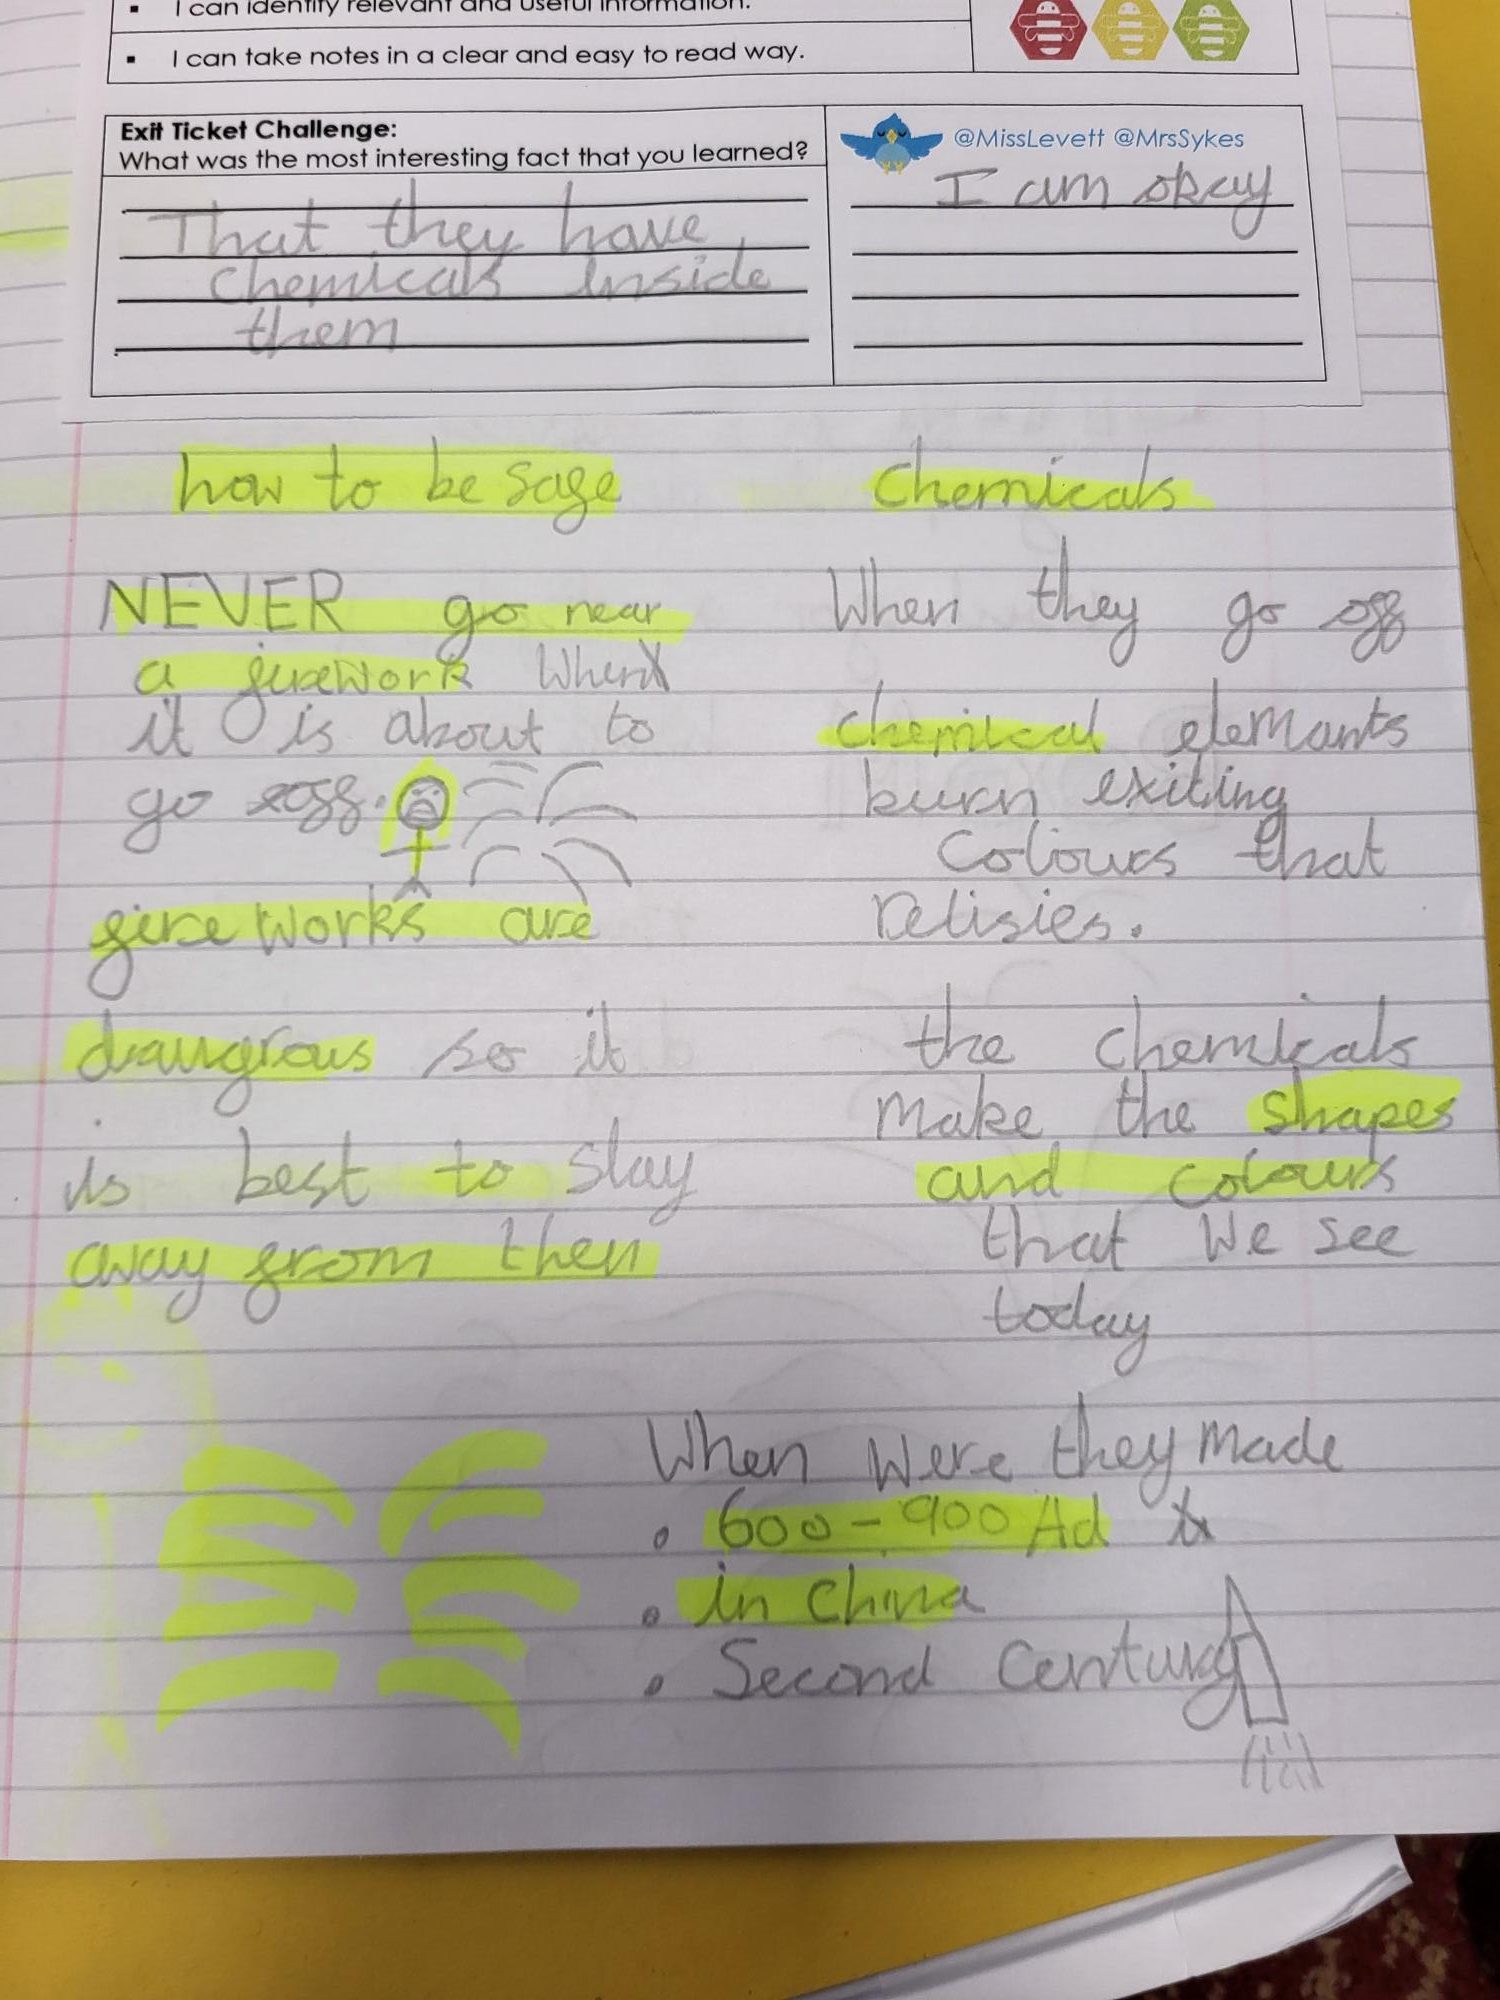 I can identify relevant and useful information.
I can take notes in a clear and easy to read way.
Exit Ticket Challenge:
What was the most interesting fact that you learned?
That they have
chemicals inside
them
@MissLevett @MrsSykes
I am okay
how to be safe
NEVER go near
a firework when
it is about to
go off.
fireworks are
daungrous so it
is best to stay
away from then
chemicals
When they go off
chemical elemants
burn exiting
colours that
relisies.
the chemicals
make the shapes
and colours
that we see
today
When were they made
• 600-900 Ad
• in china
• Second Century